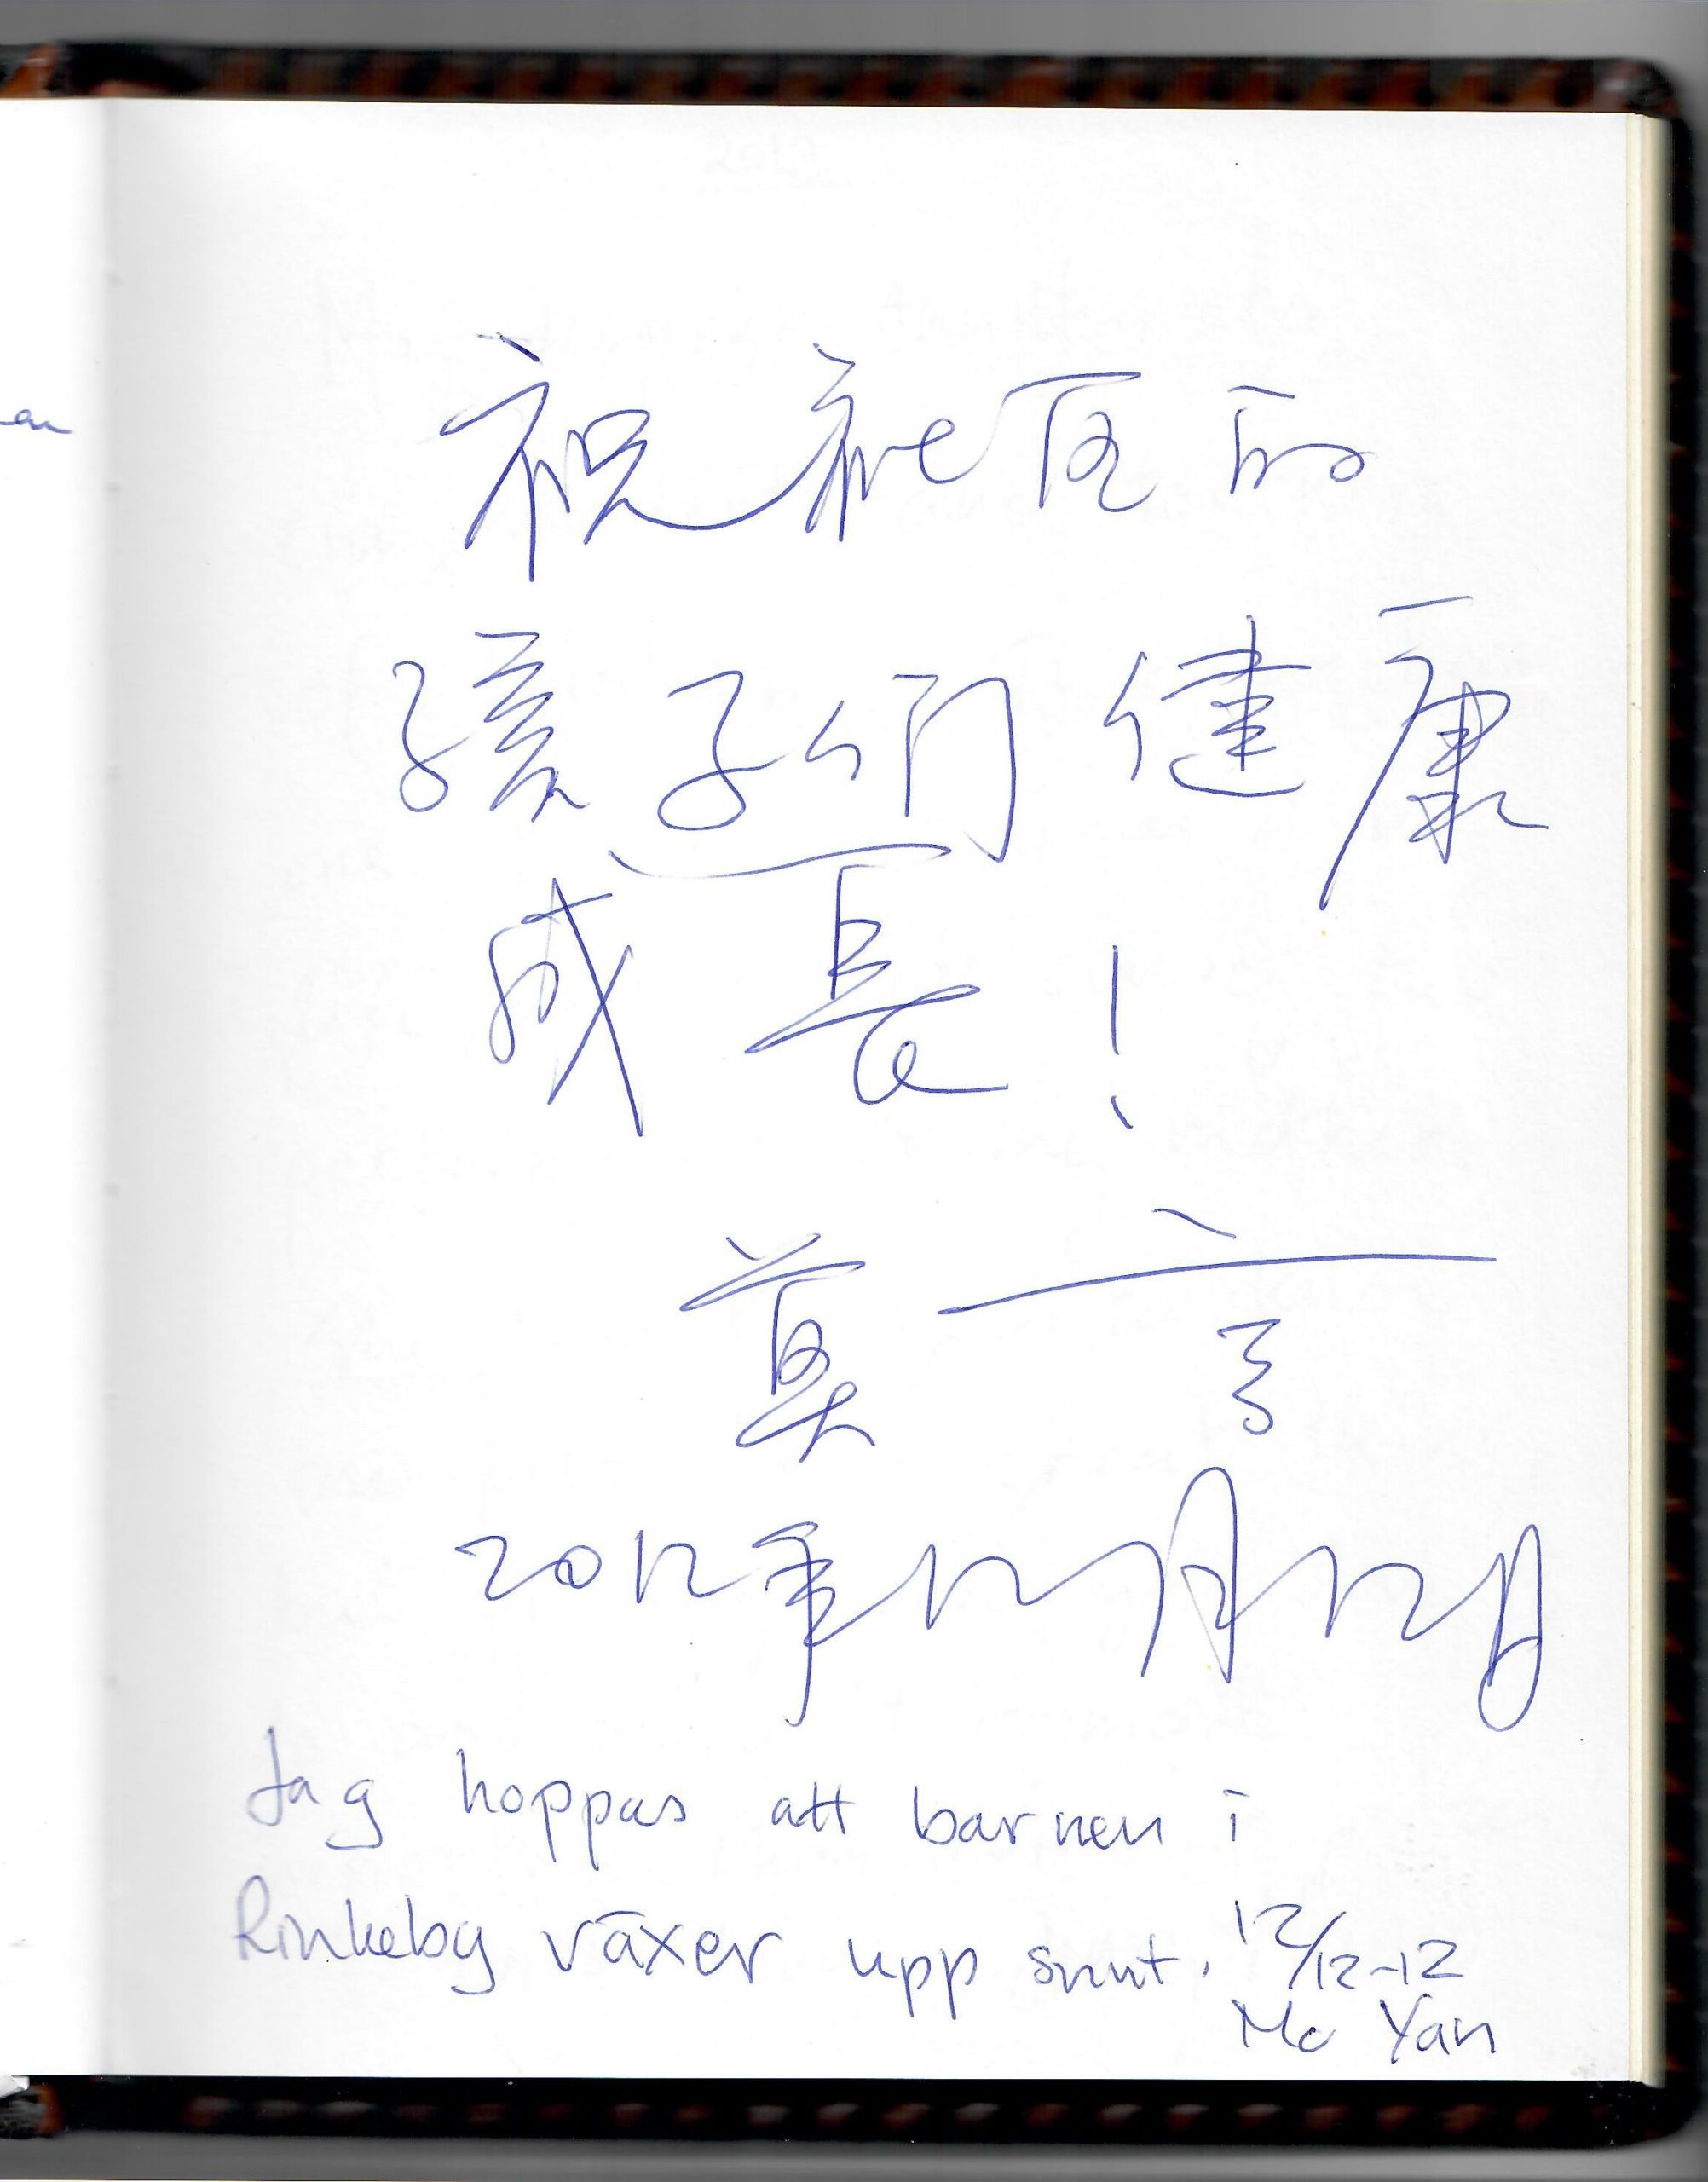 祝社区的
孩子們健康
成長!
莫言
2012年12月12日
Jag hoppas att barnen i
Rinkeby växer upp sunt. 12/12-12
Mo Yan